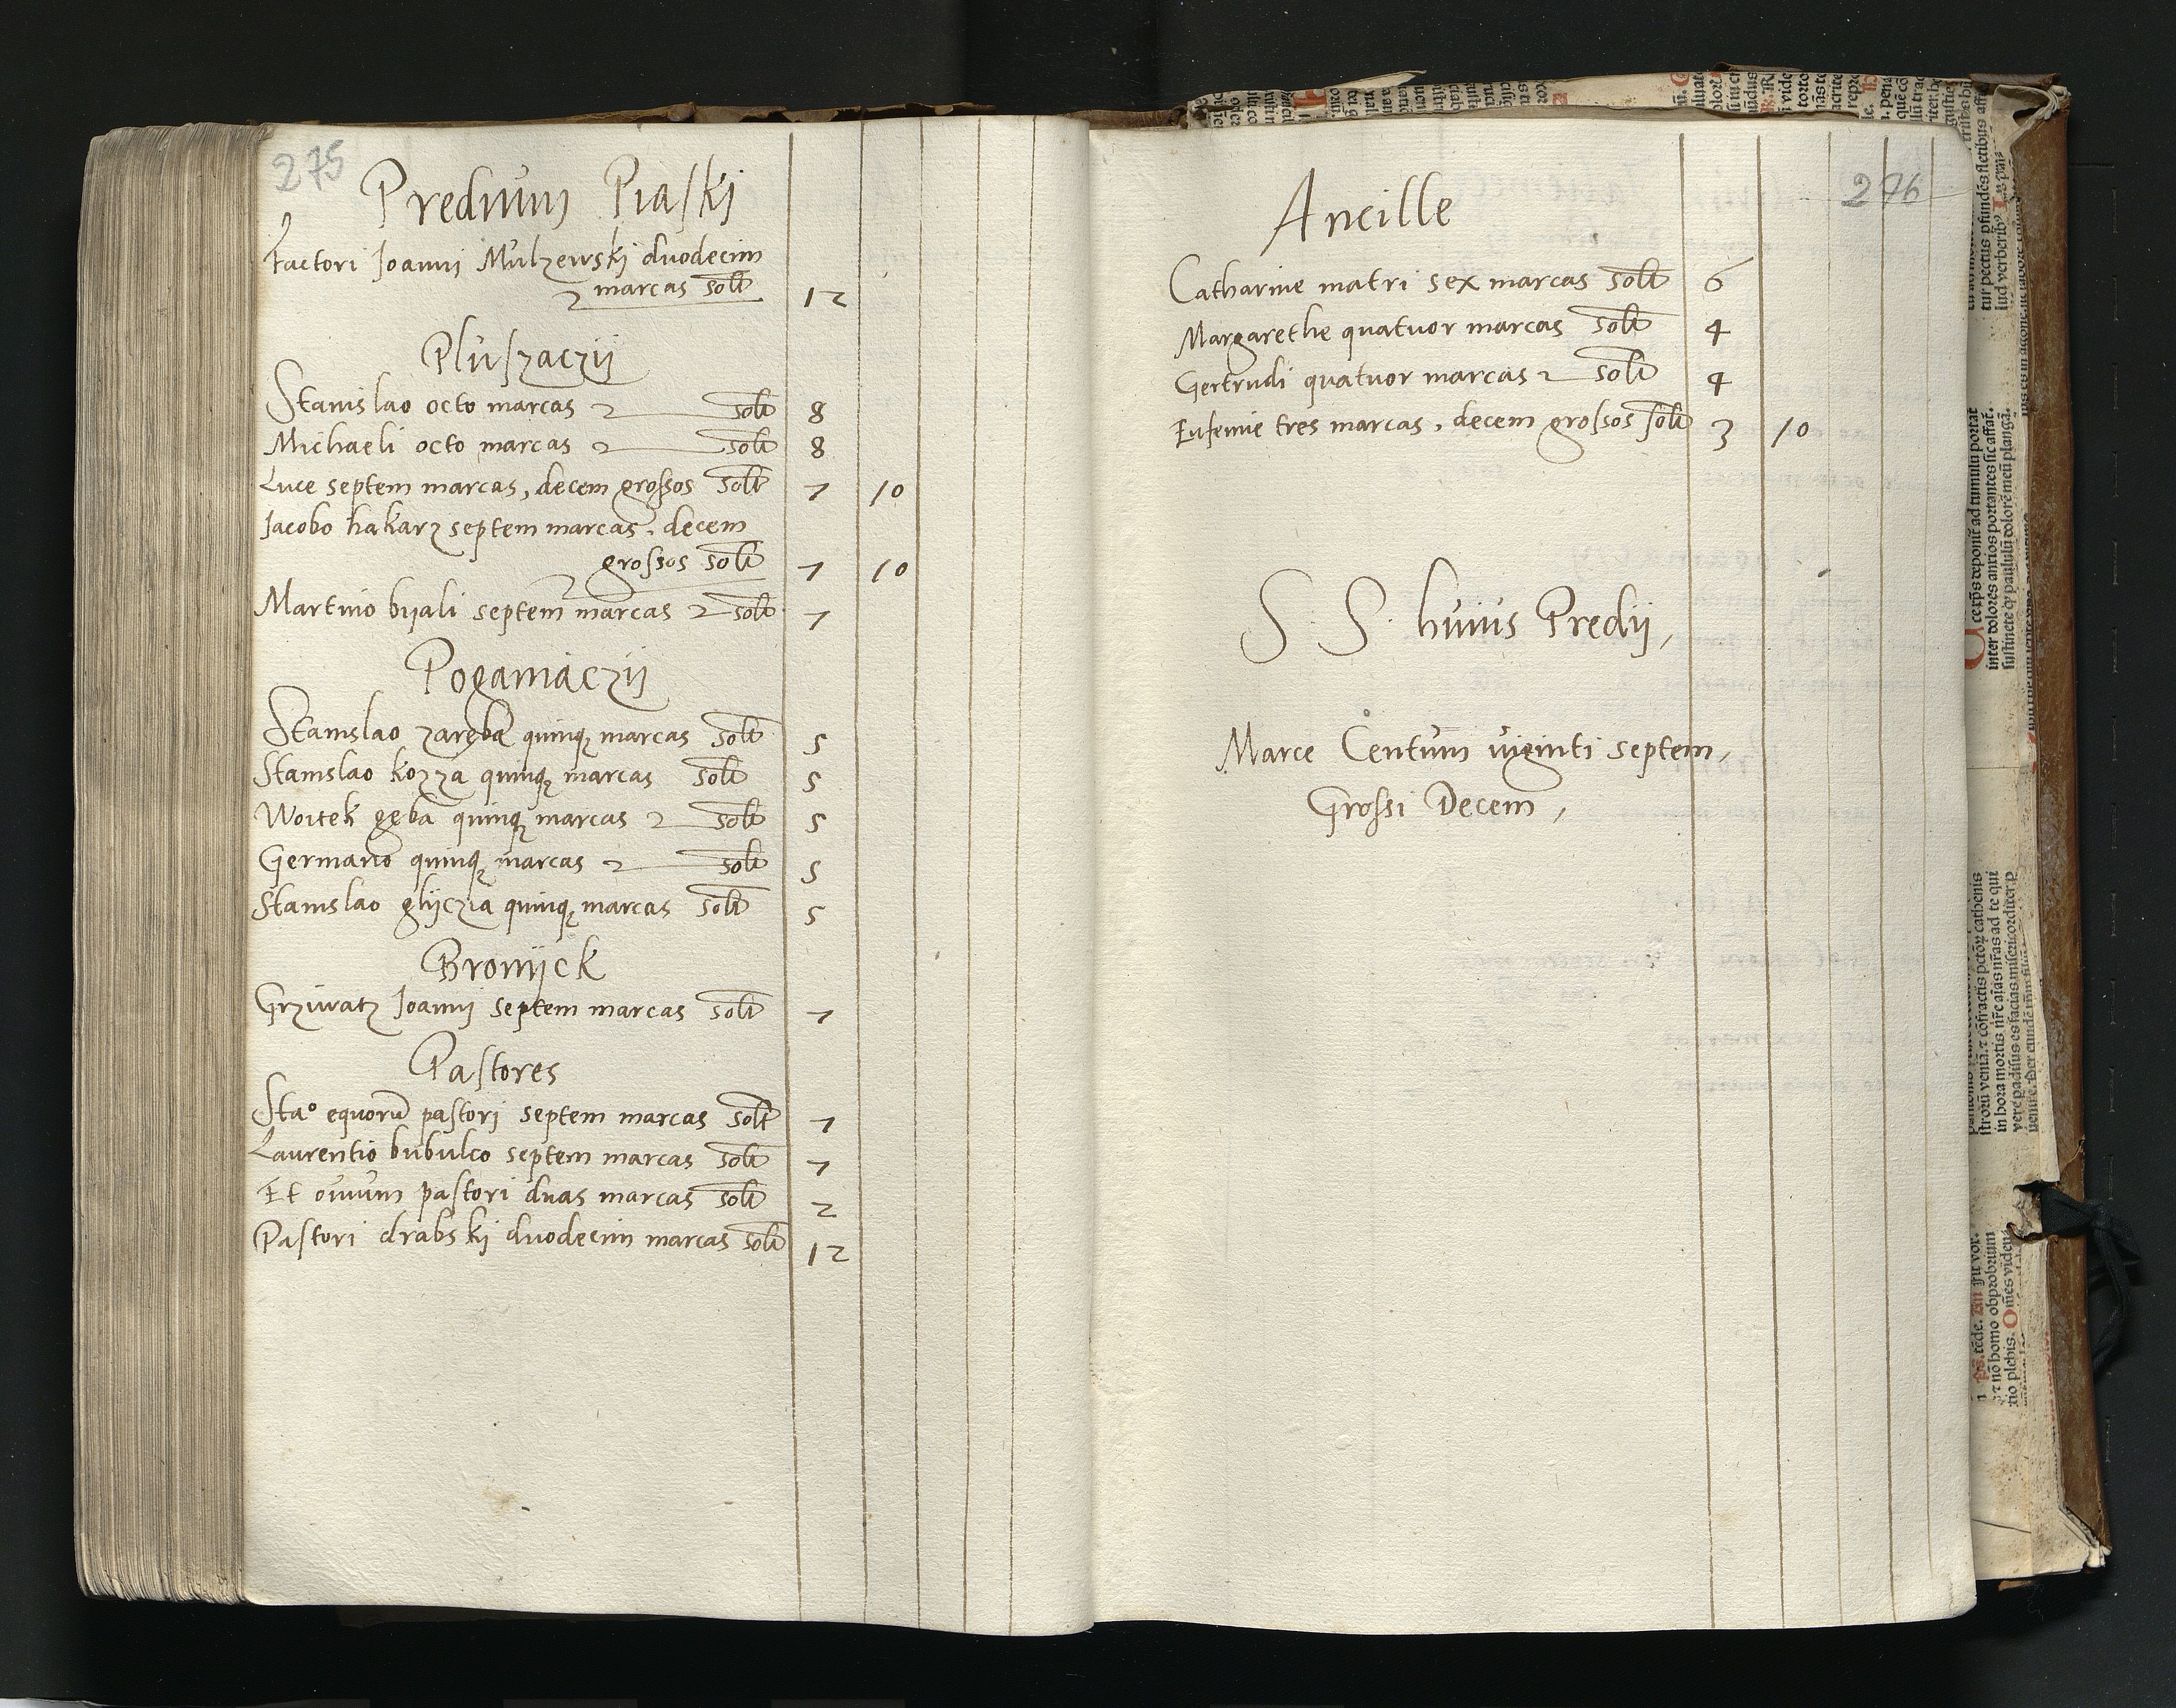 275
Predium Piaski
Factori Joanni Mulzewski duodecim
marcas solt 12
Pluszaczij
Stanislao octo marcas solt 8
Michaeli octo marcas solt 8
Luce septem marcas, decem grossos solt 7 10
Jacobo kakarz septem marcas, decem
grossos solt 7 10
Martino bijali septem marcas solt 7
Poganiaczij
Stanislao zaręba quinq; marcas solt 5
Stanislao kozza quinq; marcas solt 5
Woitek gęba quinq; marcas solt 5
Germano quinq; marcas solt 5
Stanislao glijczia quinq; marcas solt 5
Bronijck
Grziwatz Joanni septem marcas solt 7
Pastores
Stao equorū pastori septem marcas solt 7
Laurentio bubulco septem marcas solt 7
Et ouium pastori duas marcas solt 2
Pastori drabskj duodecim marcas solt 12
276
Ancille
Catharine matri sex marcas solt 6
Margarethe quatuor marcas solt 4
Gertrudi quatuor marcas solt 4
Eufemie tres marcas, decem grossos solt 3 10
S. S. huius Predij,
Marce Centum uiginti septem,
Grossi Decem,